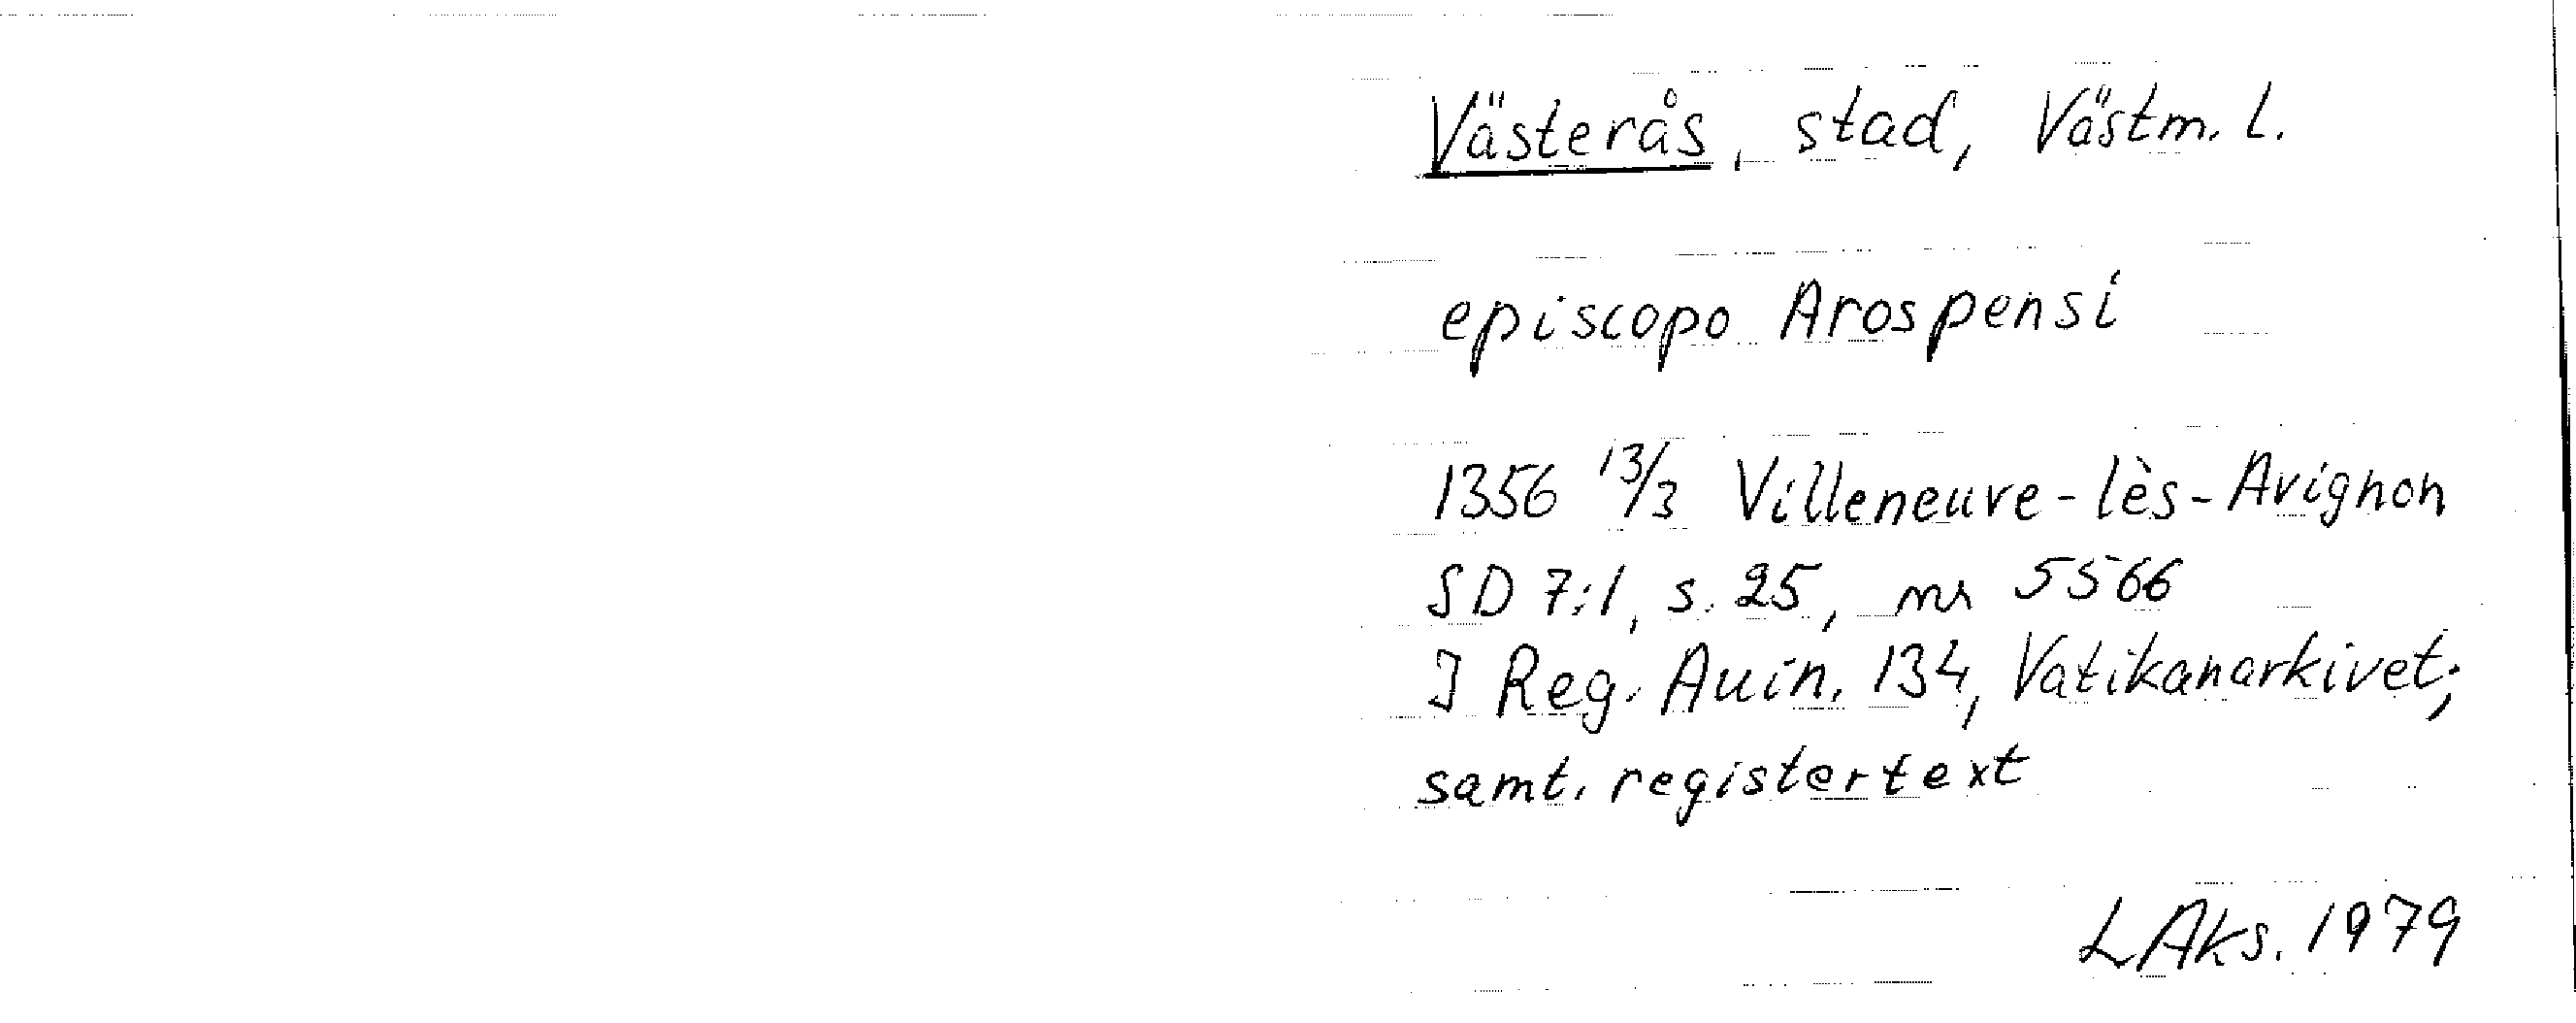 Västerås, stad, Västm. l.
episcopo Arospensi
1356 13/3 Villeneuve-lès-Avignon
SD 7:1, s. 25, nr 5566
I Reg. Auin. 134, Vatikanarkivet;
samt. registertext
LAks. 1979